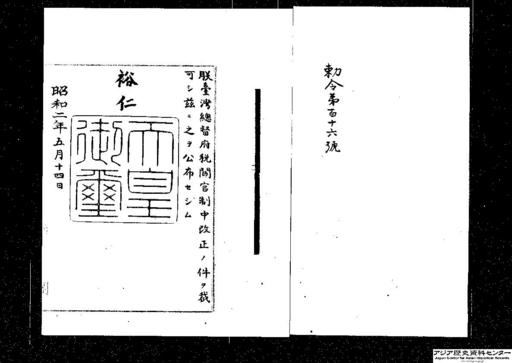 勅令第百十六號
朕臺灣總督府稅關官制中改正ノ件ヲ裁
可シ茲ニ之ヲ公布セシム
裕仁
天皇
御璽
昭和二年五月十四日
アジア歴史資料センター
Japan Center for Asian Historical Records